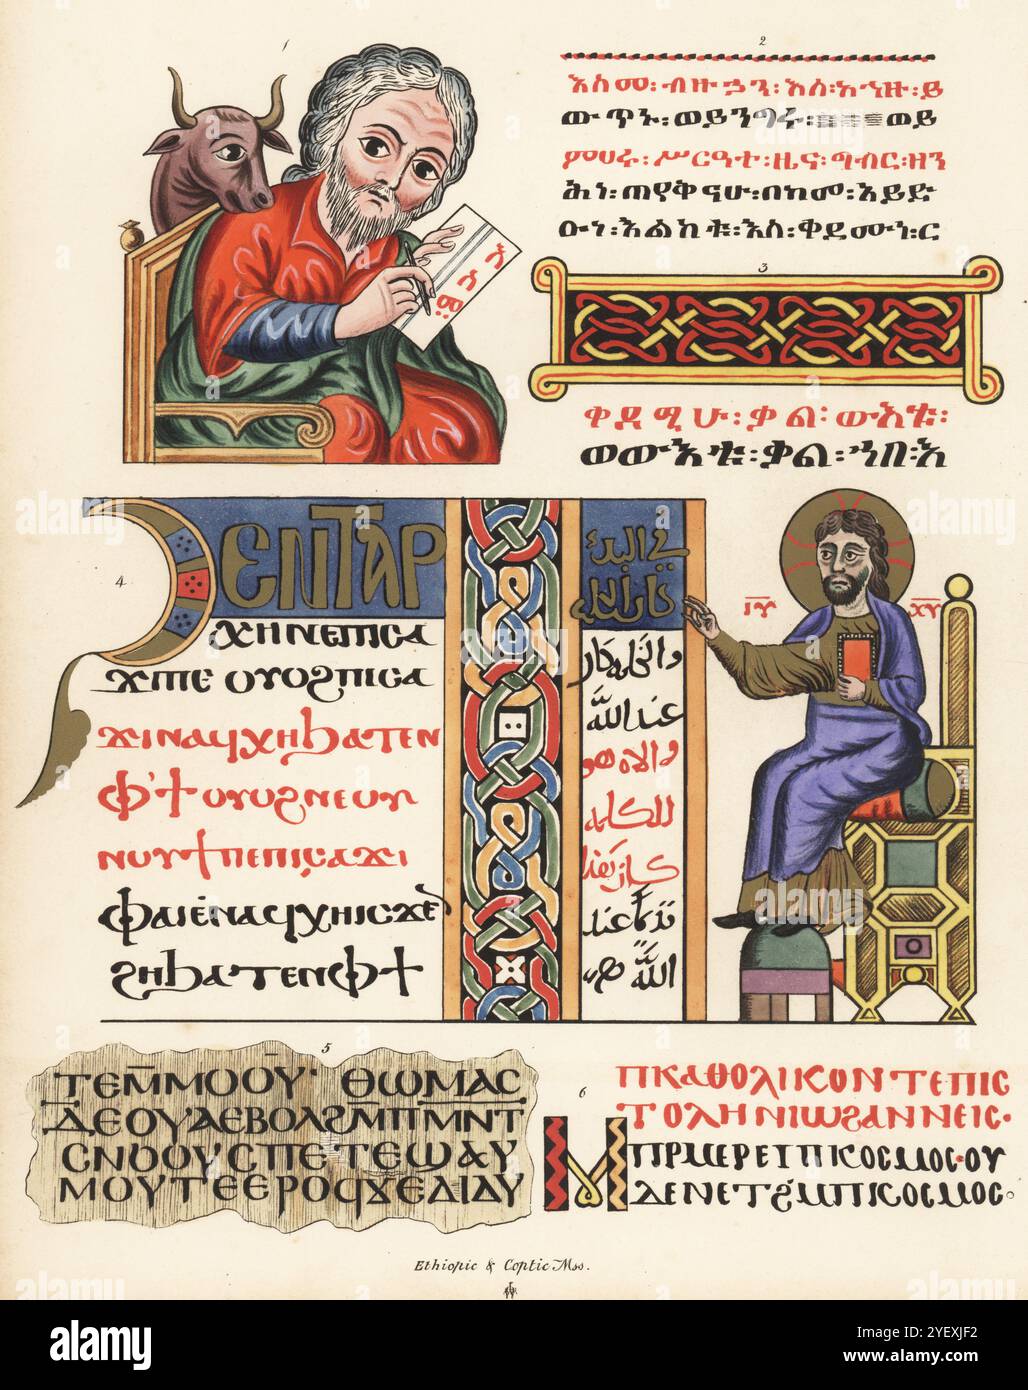 1
2
እስመ፡ብዙኃን፡እለ፡አኀዙ፡ይ
ውጥኑ፡ወይንግሩ፡ወይ
ምህሩ፡ሥርዐተ፡ዜና፡ግብር፡ዘን
ሕነ፡ጠየቅናሁ፡በከመ፡አይድ
ዑነ፡እልክቱ፡እለ፡ቀደሙነ፡ር
3
ቀደሚሁ፡ቃል፡ውእቱ፡
ወውእቱ፡ቃል፡ኀበ፡እ
4
ϧⲉⲛⲧⲁⲣ
ⲭⲏⲛⲉⲡⲓⲥⲁ
ϫⲓⲡⲉⲟⲩⲟϩⲡⲓⲥⲁ
ϫⲓⲛⲁϥⲭⲏϧⲁⲧⲉⲛ
ⲫϯⲟⲩⲟϩⲛⲉⲟⲩ
ⲛⲟⲩϯⲡⲉⲡⲓⲥⲁϫⲓ
ⲫⲁⲓⲉⲛⲁϥⲭⲏⲓⲥϫⲉ
ϩⲏϧⲁⲧⲉⲛⲫϯ
في البدء
كان الكلمه
والكلمه كان
عند الله
والاه هو
الكلمه
كان هذا
عند
الله
ⲓ̅ⲟ̅ⲩ̅ ⲭ̅ⲟ̅ⲩ̅
5
ⲧⲉⲙ̅ⲙⲟⲟⲩ· ⲑⲱⲙⲁⲥ
ⲇⲉⲟⲩⲁⲉⲃⲟⲗϩⲙ̅ⲡⲙⲛ̅ⲧ
ⲥⲛⲟⲟⲩⲥⲡⲉⲧⲉϣⲁⲩ
ⲙⲟⲩⲧⲉⲉⲣⲟϥϫⲉⲇⲓⲇⲩ
6
ⲡⲕⲁⲑⲟⲗⲓⲕⲟⲛⲧⲉⲡⲓⲥ
ⲧⲟⲗⲏⲛⲓⲱϩⲁⲛⲛⲉⲓⲥ·
ⲙⲡⲣⲙⲉⲣⲉⲡⲓⲕⲟⲥⲙⲟⲥ·ⲟⲩ
ⲇⲉⲛⲉⲧϩⲙⲡⲓⲕⲟⲥⲙⲟⲥ·
Ethiopic & Coptic Mss.
alamy
Image ID: 2YEXJF2
www.alamy.com